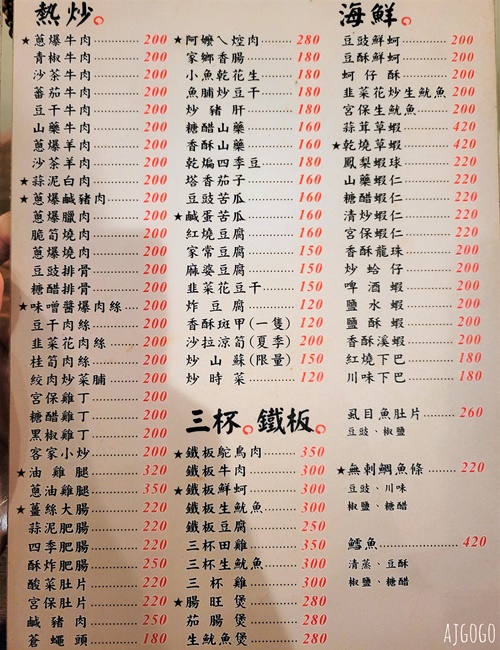 熱炒
★蔥爆牛肉 200
青椒牛肉 200
沙茶牛肉 200
蕃茄牛肉 200
豆干牛肉 200
山藥牛肉 200
蔥爆羊肉 200
沙茶羊肉 200
★蒜泥白肉 200
★蔥爆鹹豬肉 200
蔥爆臘肉 200
脆筍燒肉 200
蔥爆燒肉 200
豆豉排骨 200
糖醋排骨 200
★味噌醬爆肉絲 200
豆干肉絲 200
韭菜花肉絲 200
桂筍肉絲 200
絞肉炒菜脯 200
宮保雞丁 200
糖醋雞丁 200
黑椒雞丁 200
客家小炒 200
★油雞腿 320
蔥油雞腿 350
★薑絲大腸 220
蒜泥肥腸 220
四季肥腸 220
酥炸肥腸 250
酸菜肚片 220
宮保肚片 220
鹹豬肉 250
蒼蠅頭 180
★阿嬤ㄟ焢肉 280
家鄉香腸 180
小魚乾花生 180
魚脯炒豆干 180
炒豬肝 180
糖醋山藥 160
香酥山藥 160
乾煸四季豆 180
塔香茄子 160
豆豉苦瓜 160
★鹹蛋苦瓜 160
紅燒豆腐 160
家常豆腐 150
麻婆豆腐 150
韭菜花豆干 150
炸豆腐 120
香酥斑甲(一隻) 120
沙拉涼筍(夏季) 200
炒山蘇(限量) 150
炒時菜 120
三杯。鐵板。
★鐵板鴕鳥肉 350
鐵板牛肉 300
★鐵板鮮蚵 300
鐵板生魷魚 300
鐵板豆腐 250
三杯田雞 350
三杯生魷魚 300
三杯雞 300
★腸旺煲 280
茄腸煲 280
生魷魚煲 280
海鮮
豆豉鮮蚵 200
豆酥鮮蚵 200
蚵仔酥 200
韭菜花炒生魷魚 200
宮保生魷魚 200
蒜茸草蝦 420
★乾燒草蝦 420
鳳梨蝦球 220
山藥蝦仁 220
糖醋蝦仁 220
清炒蝦仁 220
宮保蝦仁 220
香酥龍珠 200
炒蛤仔 200
啤酒蝦 200
鹽水蝦 200
鹽酥蝦 200
香酥溪蝦 200
紅燒下巴 180
川味下巴 180
虱目魚肚片 260
豆豉、椒鹽
★無刺鯛魚條 220
豆豉、川味
椒鹽、糖醋
鱈魚 420
清蒸、豆酥
椒鹽、糖醋
AJGOGO